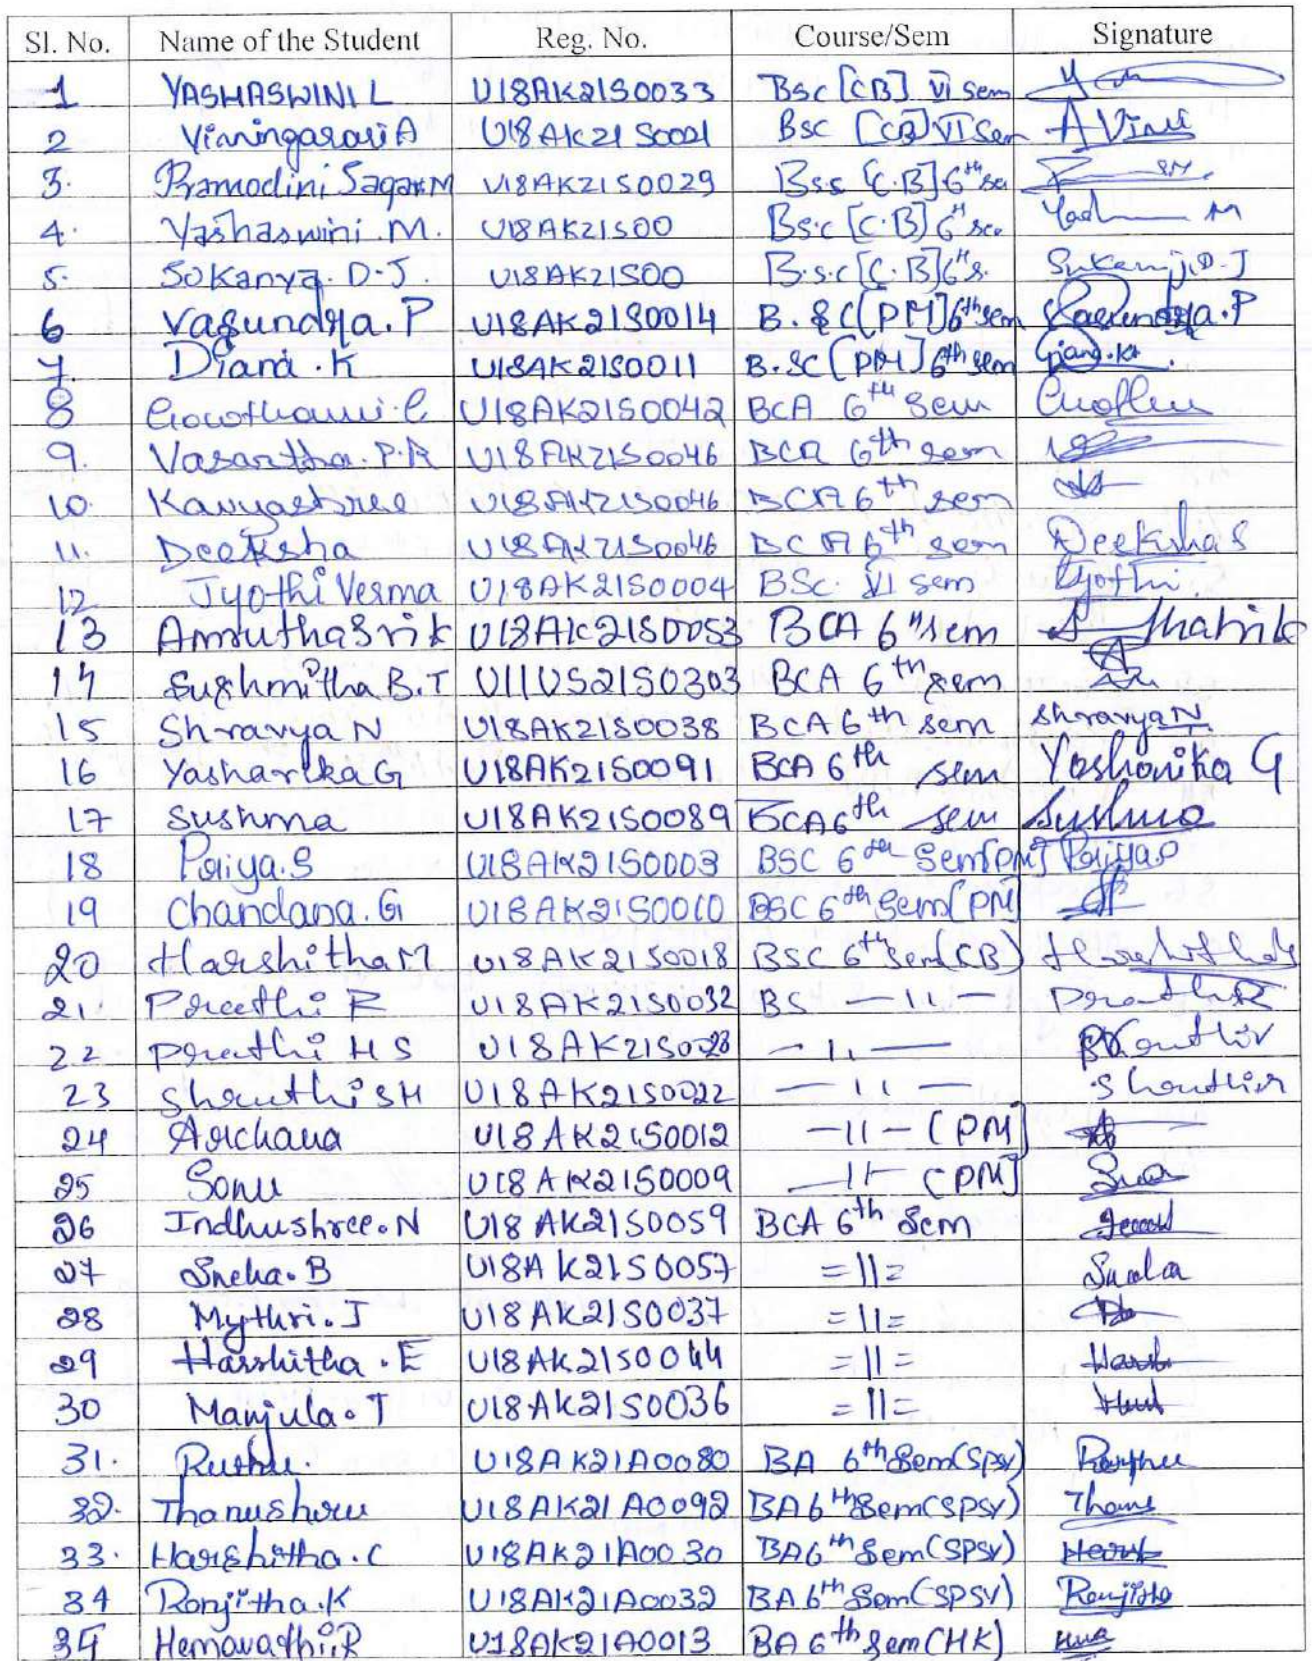 Sl. No. Name of the Student Reg. No. Course/Sem Signature
1 YASHASWINI L U18AK21S0033 Bsc [CB] VI sem
2 A U18AK21S0021 Bsc [CB] VI Sem A Vini
3. Pramodini Sagar M U18AK21S0029 Bsc [C.B] 6th se
4. Yashaswini. M. U18AK21S00 Bs.c [C.B] 6th sem M
5. Sukanya. D.J. U18AK21S00 B.s.c [C.B] 6th s. D.J
6 Vasundra. P U18AK21S0014 B. SC [PM] 6th sem Vasundra. P
7. Diana. K U18AK21S0011 B.SC [PM] 6th sem Diana. K
8 Gowthami. C U18AK21S0042 BCA 6th Sem
9. Vasantha. P.R U18AK21S0046 BCA 6th sem
10. Kavyashree U18AK21S0046 BCA 6th sem
11. Deeksha U18AK21S0046 BCA 6th sem Deeksha S
12 Jyothi Verma U18AK21S0004 BSc. VI sem Jyothi
13 Amrutha Sri k U18AK21S0053 BCA 6th sem
14 Sushmitha B.T U11US21S0303 BCA 6th sem
15 Shravya N U18AK21S0038 BCA 6th sem Shravya N
16 Yasharika G U18AK21S0091 BCA 6th sem Yasharika G
17 Sushma U18AK21S0089 BCA 6th sem Sushma
18 Priya.S U18AK21S0003 BSC 6th Sem [PM] Priya.S
19 Chandana. G U18AK21S0010 BSC 6th Sem [PM]
20 Harshitha M U18AK21S0018 BSC 6th Sem (CB) Harshitha
21. Preethi R U18AK21S0032 BS — 11 — Preethi R
22 Preethi H S U18AK21S0028 — 11 —
23 Shruthi SH U18AK21S0022 — 11 —
24 Archana U18AK21S0012 — 11 — (PM]
25 Sonu U18AK21S0009 — 11 — (PM]
26 Indhushree. N U18AK21S0059 BCA 6th Sem
27 Sneha. B U18AK21S0057 =11=
28 Mythri. J U18AK21S0037 =11=
29 Harshitha. E U18AK21S0044 =11= Harsh
30 Manjula. T U18AK21S0036 =11=
31. U18AK21A0080 BA 6th Sem (SPSY)
32. Thanushree U18AK21A0092 BA 6th Sem (SPSY) Thanu
33. Harshitha. C U18AK21A0030 BA 6th Sem (SPSY)
34 Ranjitha. K U18AK21A0032 BA 6th Sem (SPSY) Ranjitha
35 Hemavathi. R U18AK21A0013 BA 6th Sem (HK)